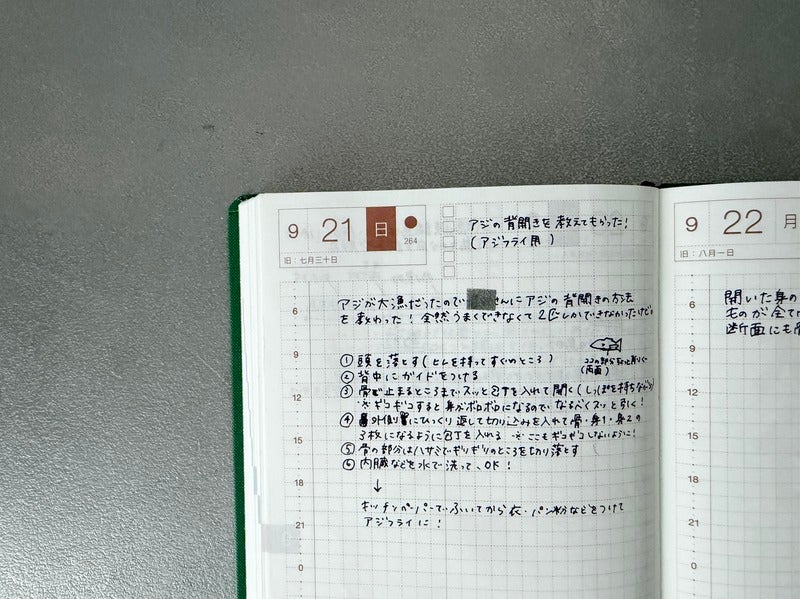 9 21 日
264
旧：七月三十日
アジの背開きを教えてもらった！
（アジフライ用）
アジが大漁だったので さんにアジの背開きの方法
を教わった！全然うまくできなくて2匹しかできなかったけど。
①頭を落とす（ヒレを持ってすぐのところ）
ココの部分
（両面）
②背中にガイドをつける
③骨で止まるところまでスッと包丁を入れて開く（しっぽを持ちながら）
※ギコギコすると身がボロボロになるのでなるべくスッと引く！
④外側にひっくり返して切り込みを入れて骨・身1・身2の
3枚になるように包丁を入れる ※ここもギコギコしないように！
⑤骨の部分はハサミでギリギリのところを切り落とす
⑥内臓などを水で洗って、OK！
↓
キッチンペーパーでふいてから衣・パン粉などをつけて
アジフライに！
6
9
12
15
18
21
0
9 22 月
旧：八月一日
開いた身の
ものが全て
断面にも
6
9
12
15
18
21
0